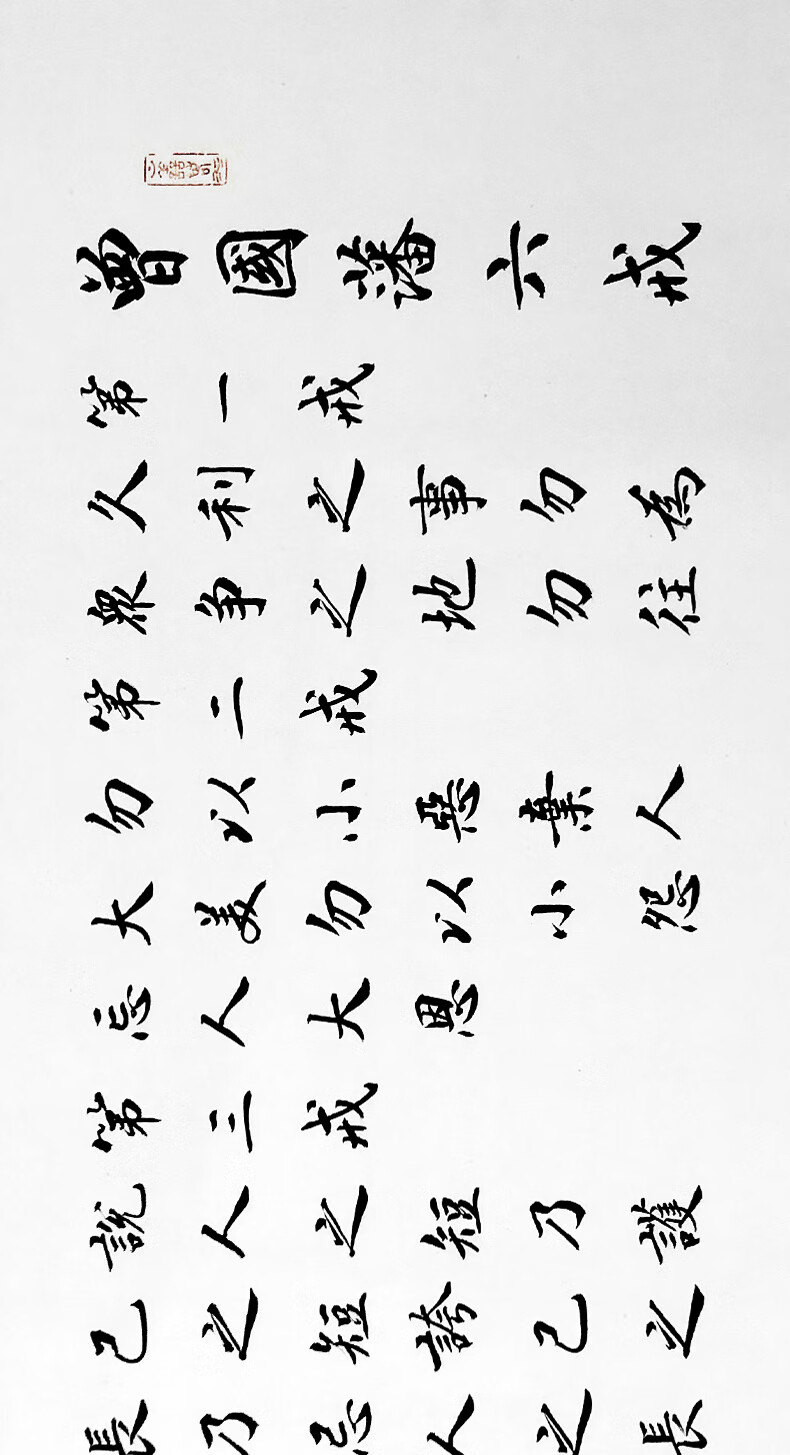 曾國藩六戒
第一戒
久利之事勿為
眾争之地勿往
第二戒
勿以小惡棄人
大美勿以小怨
忘人大恩
第三戒
說人之短乃護
己之短誇己之
長乃忌人之長